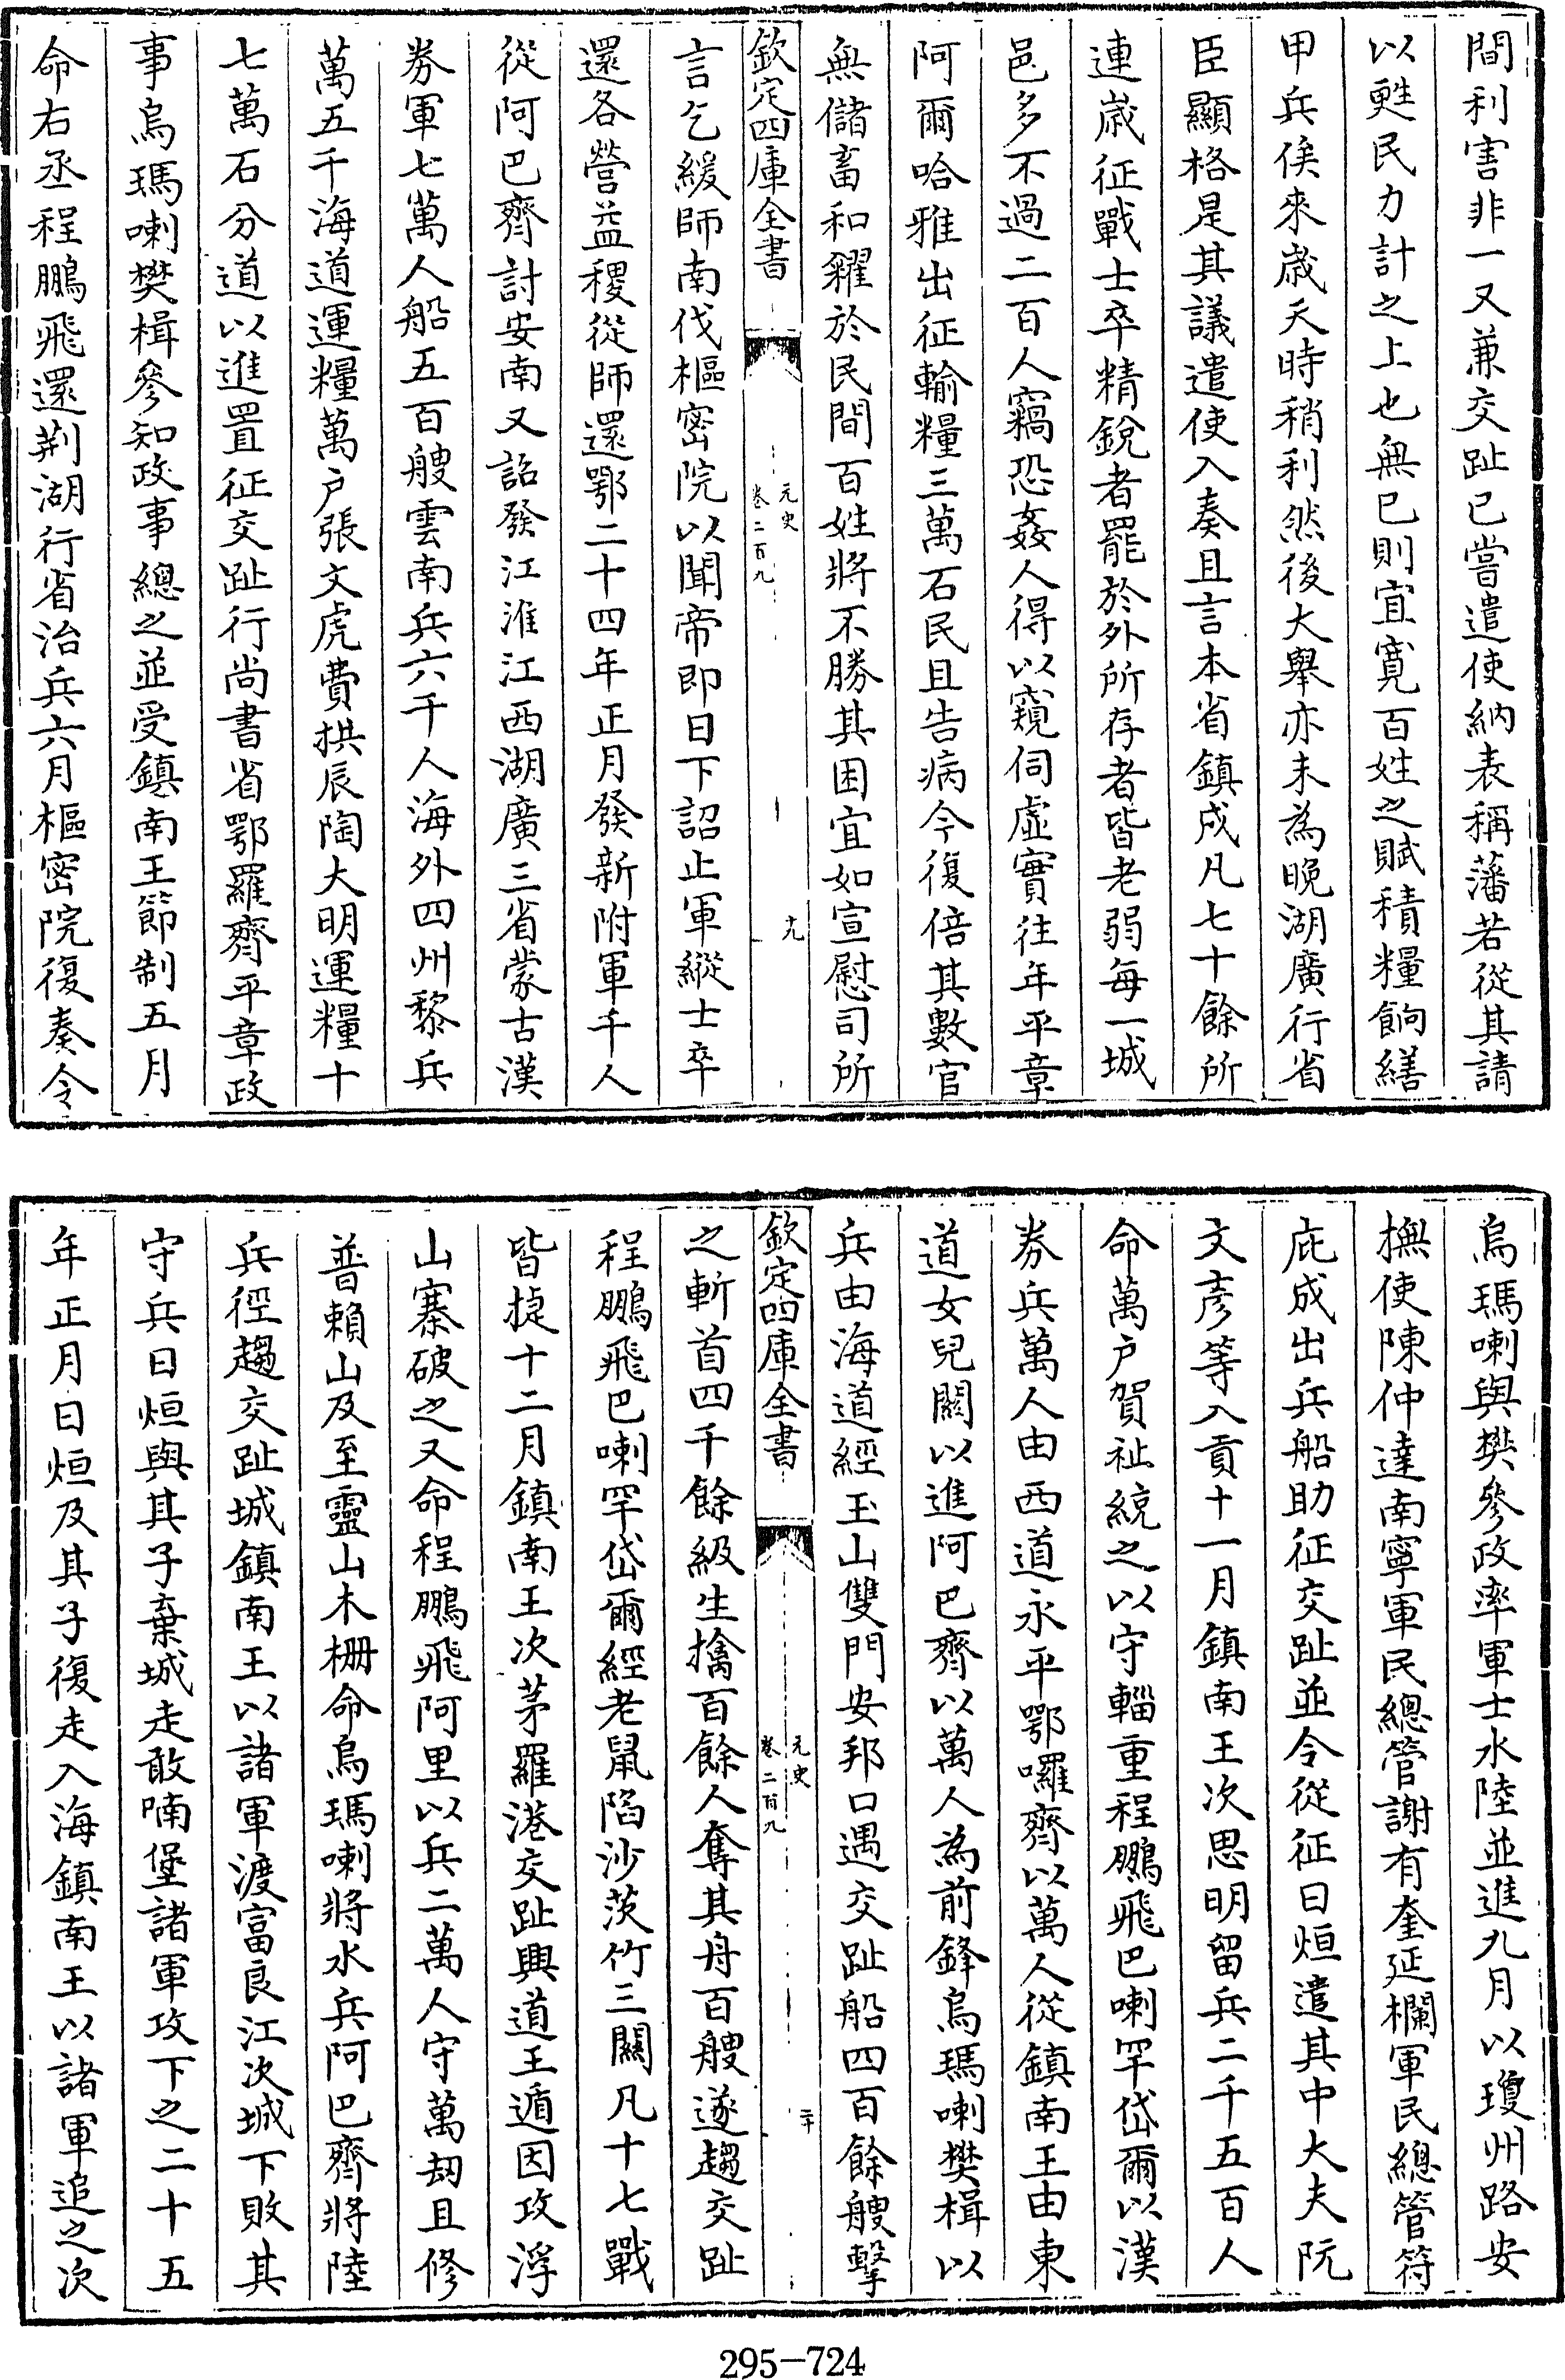 間利害非一又兼交趾已嘗遣使納表稱藩若從其請
以甦民力計之上也無已則宜寛百姓之賦積糧餉繕
甲兵俟來歲天時稍利然後大舉亦未為晚湖廣行省
臣顯格是其議遣使入奏且言本省鎮戍凡七十餘所
連歲征戰士卒精銳者罷於外所存者皆老弱每一城
邑多不過二百人竊恐姦人得以窺伺虛實往年平章
阿爾哈雅出征輸糧三萬石民且告病今復倍其數官
無儲畜和糴於民間百姓將不勝其困宜如宣慰司所
欽定四庫全書
元史
卷二百九
十九
言乞緩師南伐樞密院以聞帝即日下詔止軍縱士卒
還各營益稷從師還鄂二十四年正月發新附軍千人
從阿巴齊討安南又詔發江淮江西湖廣三省蒙古漢
券軍七萬人船五百艘雲南兵六千人海外四州黎兵
萬五千海道運糧萬户張文虎費拱辰陶大明運糧十
七萬石分道以進置征交趾行尚書省鄂羅齊平章政
事烏瑪喇樊楫參知政事總之並受鎮南王節制五月
命右丞程鵬飛還荆湖行省治兵六月樞密院復奏令
烏瑪喇與樊參政率軍士水陸並進九月以瓊州路安
撫使陳仲達南寧軍民總管謝有奎延欄軍民總管符
庇成出兵船助征交趾並令從征日烜遣其中大夫阮
文彥等入貢十一月鎮南王次思明留兵二千五百人
命萬户賀祉統之以守輜重程鵬飛巴喇罕岱爾以漢
券兵萬人由西道永平鄂囉齊以萬人從鎮南王由東
道女兒關以進阿巴齊以萬人為前鋒烏瑪喇樊楫以
兵由海道經玉山雙門安邦口遇交趾船四百餘艘擊
欽定四庫全書
元史
卷二百九
二十
之斬首四千餘級生擒百餘人奪其舟百艘遂趨交趾
程鵬飛巴喇罕岱爾經老鼠陷沙茨竹三關凡十七戰
皆捷十二月鎮南王次茅羅港交趾興道王遁因攻浮
山寨破之又命程鵬飛阿里以兵二萬人守萬刼且修
普賴山及至靈山木柵命烏瑪喇將水兵阿巴齊將陸
兵徑趨交趾城鎮南王以諸軍渡富良江次城下敗其
守兵日烜與其子棄城走敢喃堡諸軍攻下之二十五
年正月日烜及其子復走入海鎮南王以諸軍追之次
295-724